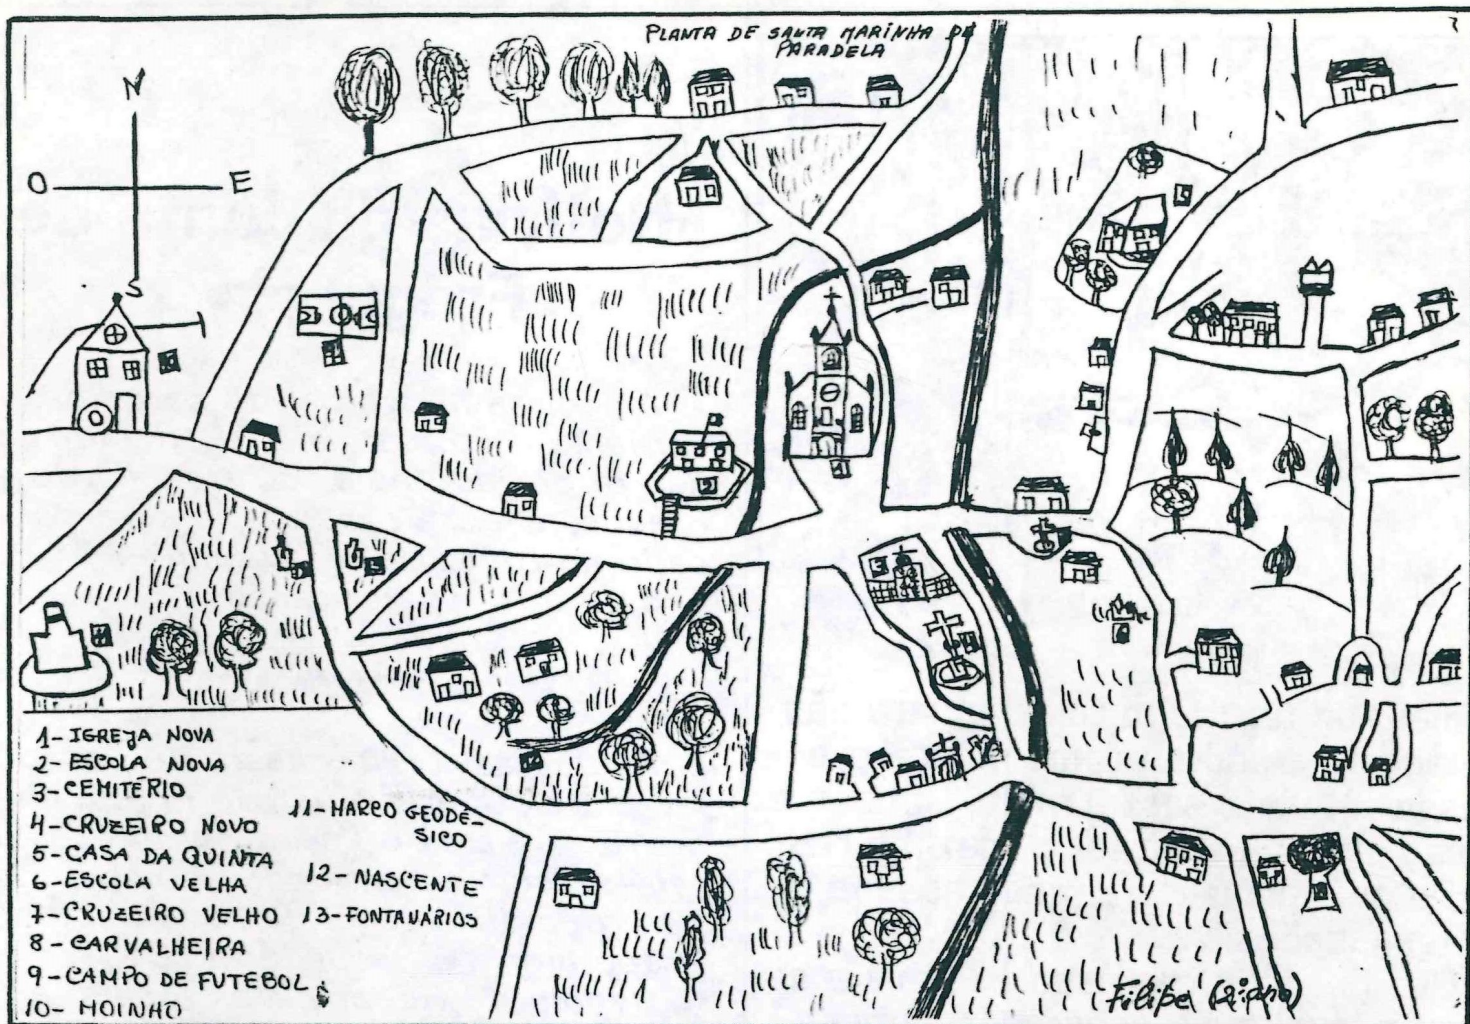 PLANTA DE SANTA MARINHA DE
PARADELA
N
O
E
S
3
1- IGREJA NOVA
2- ESCOLA NOVA
3- CEMITÉRIO
4- CRUZEIRO NOVO
5- CASA DA QUINTA
6- ESCOLA VELHA
7- CRUZEIRO VELHO
8- CARVALHEIRA
9- CAMPO DE FUTEBOL
10- MOINHO
11- MARCO GEODÉ-
SICO
12- NASCENTE
13- FONTANÁRIOS
Filipe (2º ano)